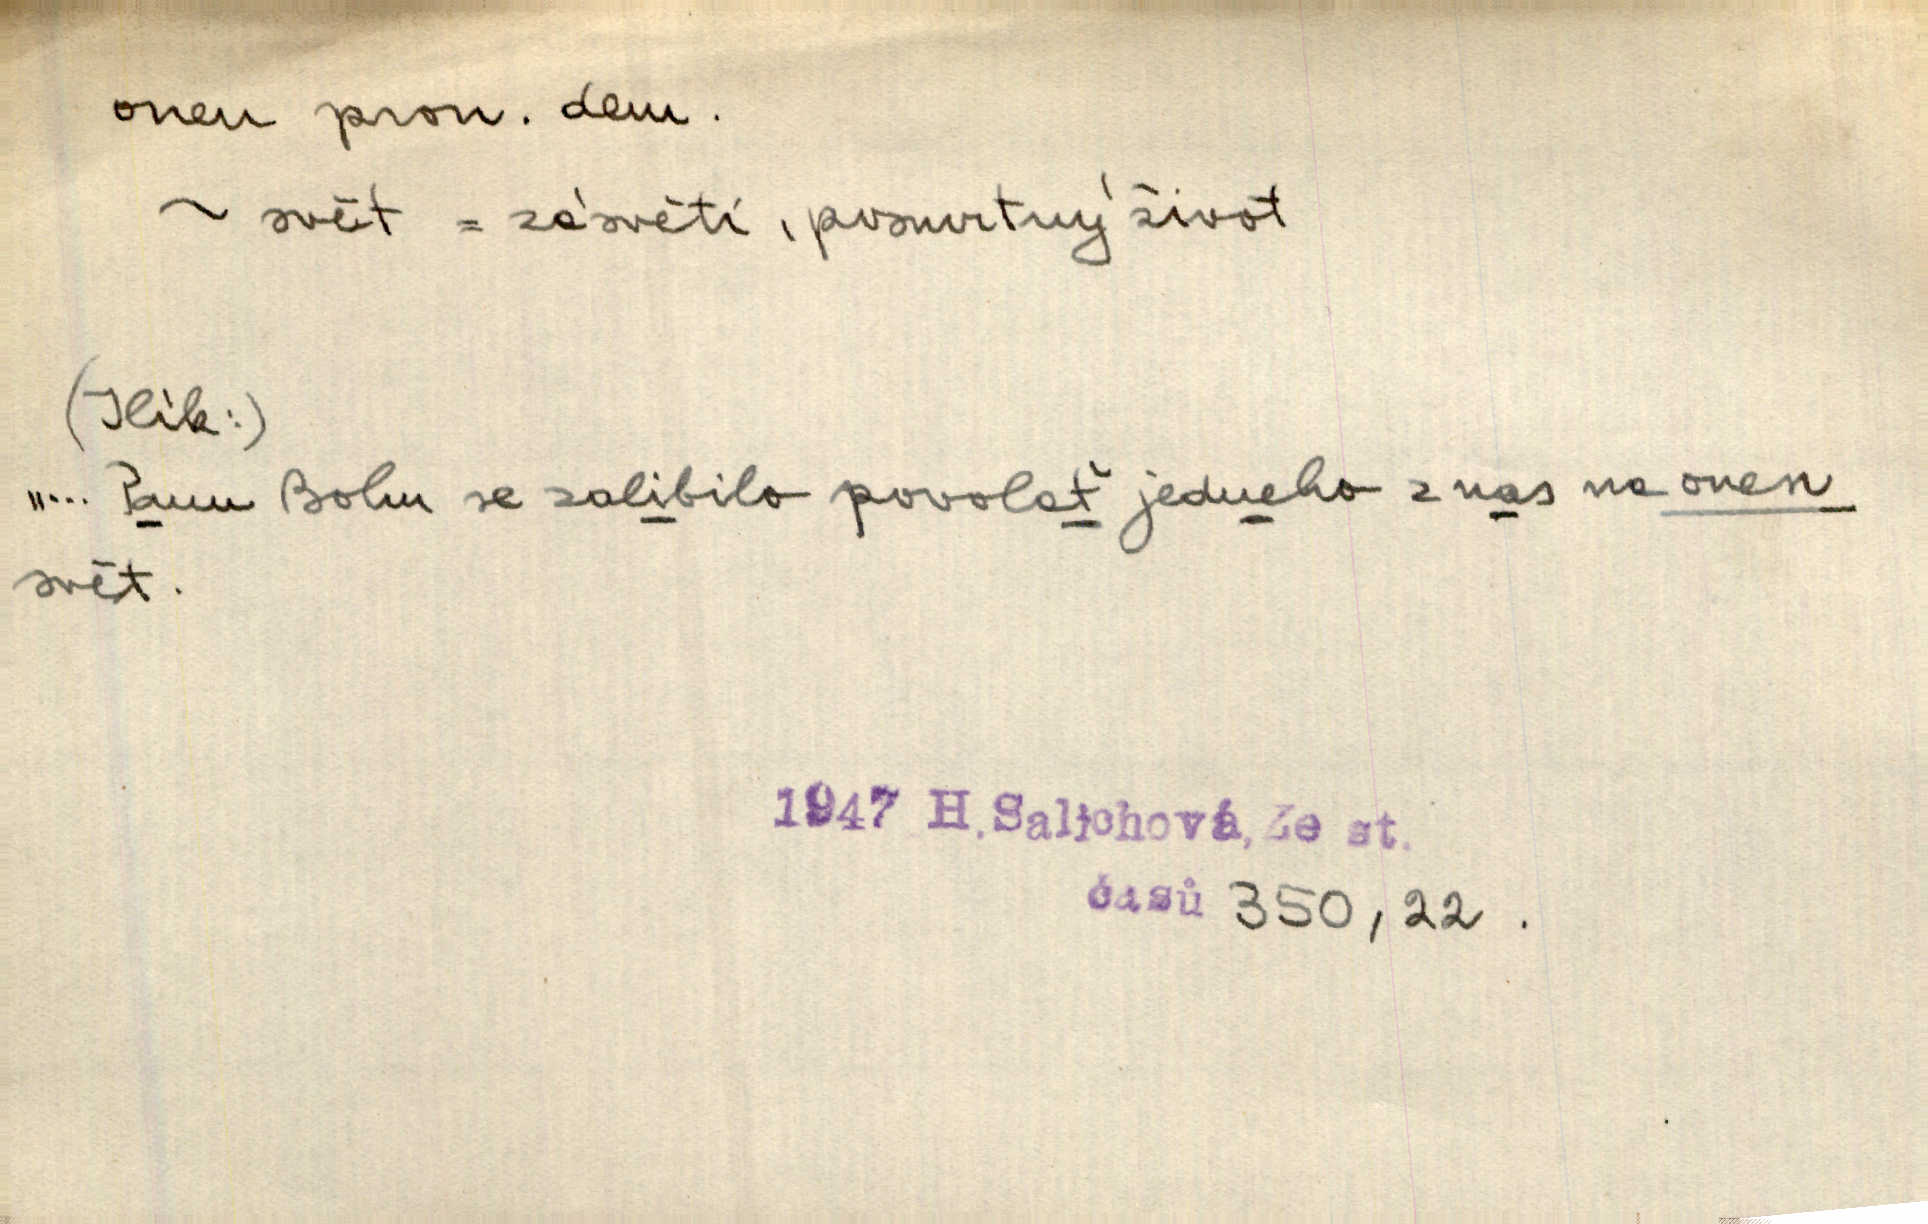 onen pron. dem.
~ svět = zásvětí, posmrtný život
(Ilík:)
„... Panu Bohu se zalibilo povolať jedneho z nas na onen
svět.
1947 H. Salichová, Ze st.
časů 350, 22.